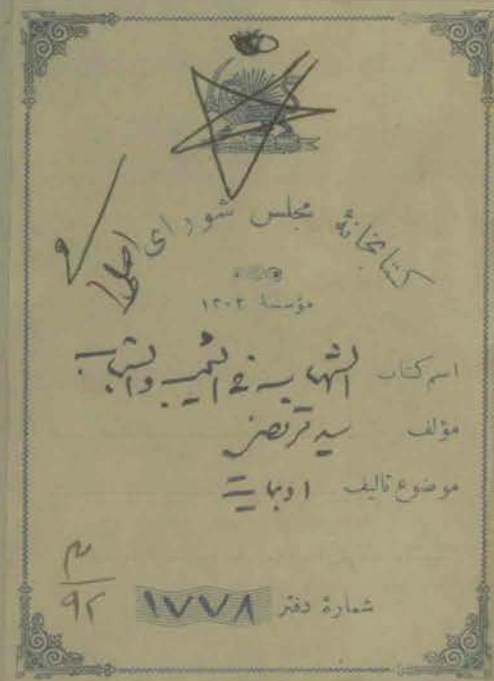 کتابخانهٔ مجلس شورای
مؤسسهٔ ۱۳۰۲
اسم کتاب الشهاب فی الشیب والشباب
مؤلف سید مرتضی
موضوع تالیف ادبیات
۹۲
شمارهٔ دفتر ۱۷۷۸